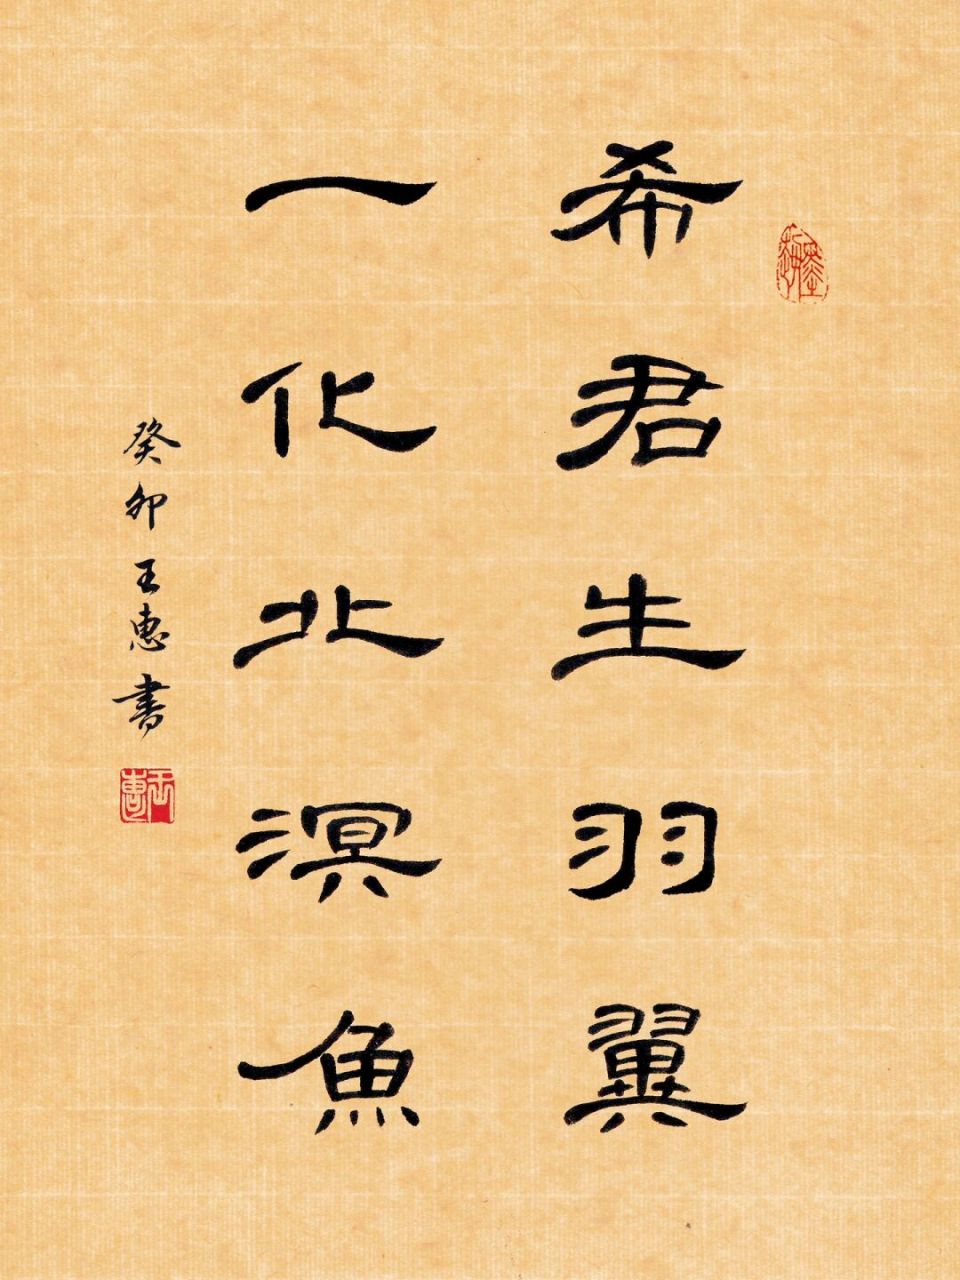 希君生羽翼
一化北溟魚
癸卯王惠書
王惠